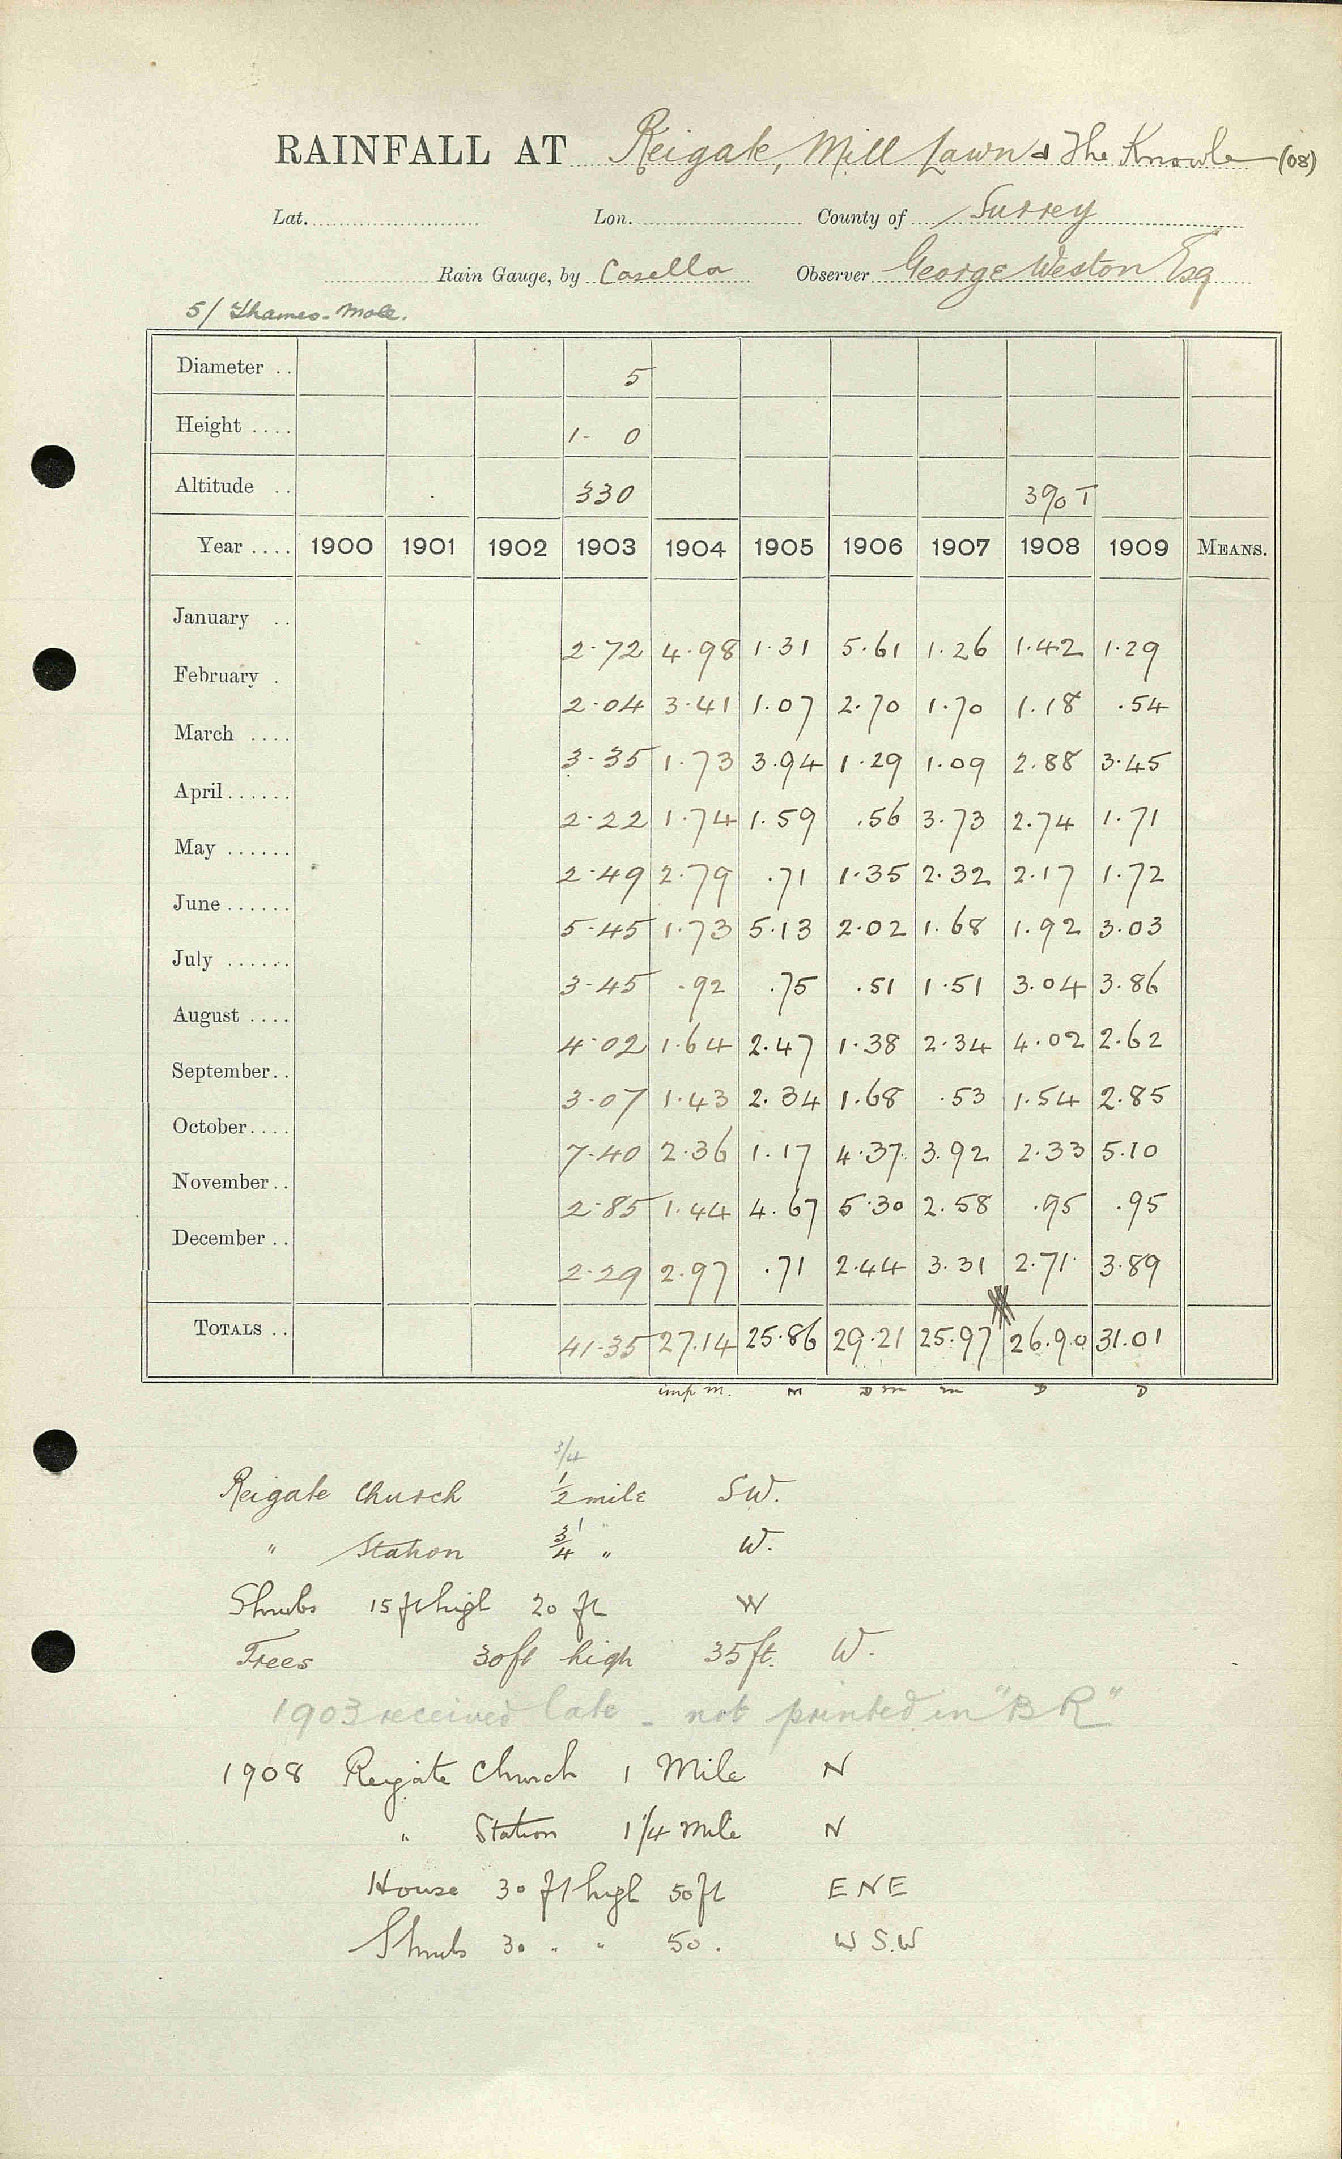 RAINFALL AT Reigate, Mill Lawn & The Knowle (08)
Lat. Lon. County of Surrey
Rain Gauge, by Casella Observer George Weston Esq
5/ Thames-Mole.
Diameter .. 5
Height .... 1- 0
Altitude .. 330 390 T
Year .... 1900 1901 1902 1903 1904 1905 1906 1907 1908 1909 MEANS.
January .. 2.72 4.98 1.31 5.61 1.26 1.42 1.29
February . 2.04 3.41 1.07 2.70 1.70 1.18 .54
March .... 3.35 1.73 3.94 1.29 1.09 2.88 3.45
April...... 2.22 1.74 1.59 .56 3.73 2.74 1.71
May ...... 2.49 2.79 .71 1.35 2.32 2.17 1.72
June...... 5.45 1.73 5.13 2.02 1.68 1.92 3.03
July ...... 3.45 .92 .75 .51 1.51 3.04 3.86
August .... 4.02 1.64 2.47 1.38 2.34 4.02 2.62
September.. 3.07 1.43 2.34 1.68 .53 1.54 2.85
October.... 7.40 2.36 1.17 4.37 3.92 2.33 5.10
November.. 2.85 1.44 4.67 5.30 2.58 .95 .95
December .. 2.29 2.97 .71 2.44 3.31 2.71 3.89
TOTALS .. 41.35 27.14 25.86 29.21 25.97 26.90 31.01
imp m. m D m m D D
3/4
Reigate Church 1/2 mile SW.
" Station 3/4 " W.
Shrubs 15 ft high 20 ft W
Trees 30ft high 35ft. W.
1903 received late - not printed in "B R"
1908 Reigate Church 1 Mile N
" Station 1 1/4 Mile N
House 30 ft high 50ft ENE
Shrubs 30 " " 50 . W S.W